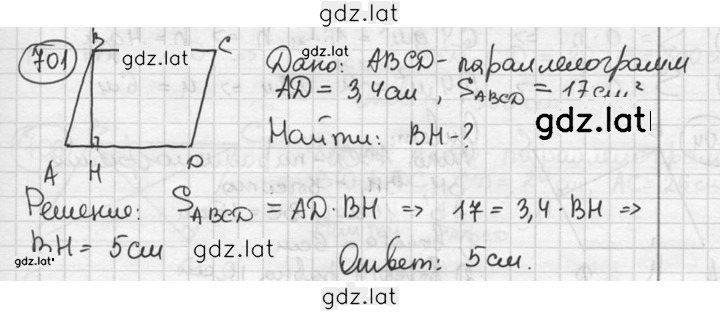 gdz.lat
701
B C
gdz.lat
A H D
gdz.lat
Дано: ABCD - параллелограмм
AD = 3,4 см, S_ABCD = 17 см²
gdz.lat
Найти: BH - ?
Решение: S_ABCD = AD · BH => 17 = 3,4 · BH =>
BH = 5 см
gdz.lat
gdz.lat
Ответ: 5 см.
gdz.lat